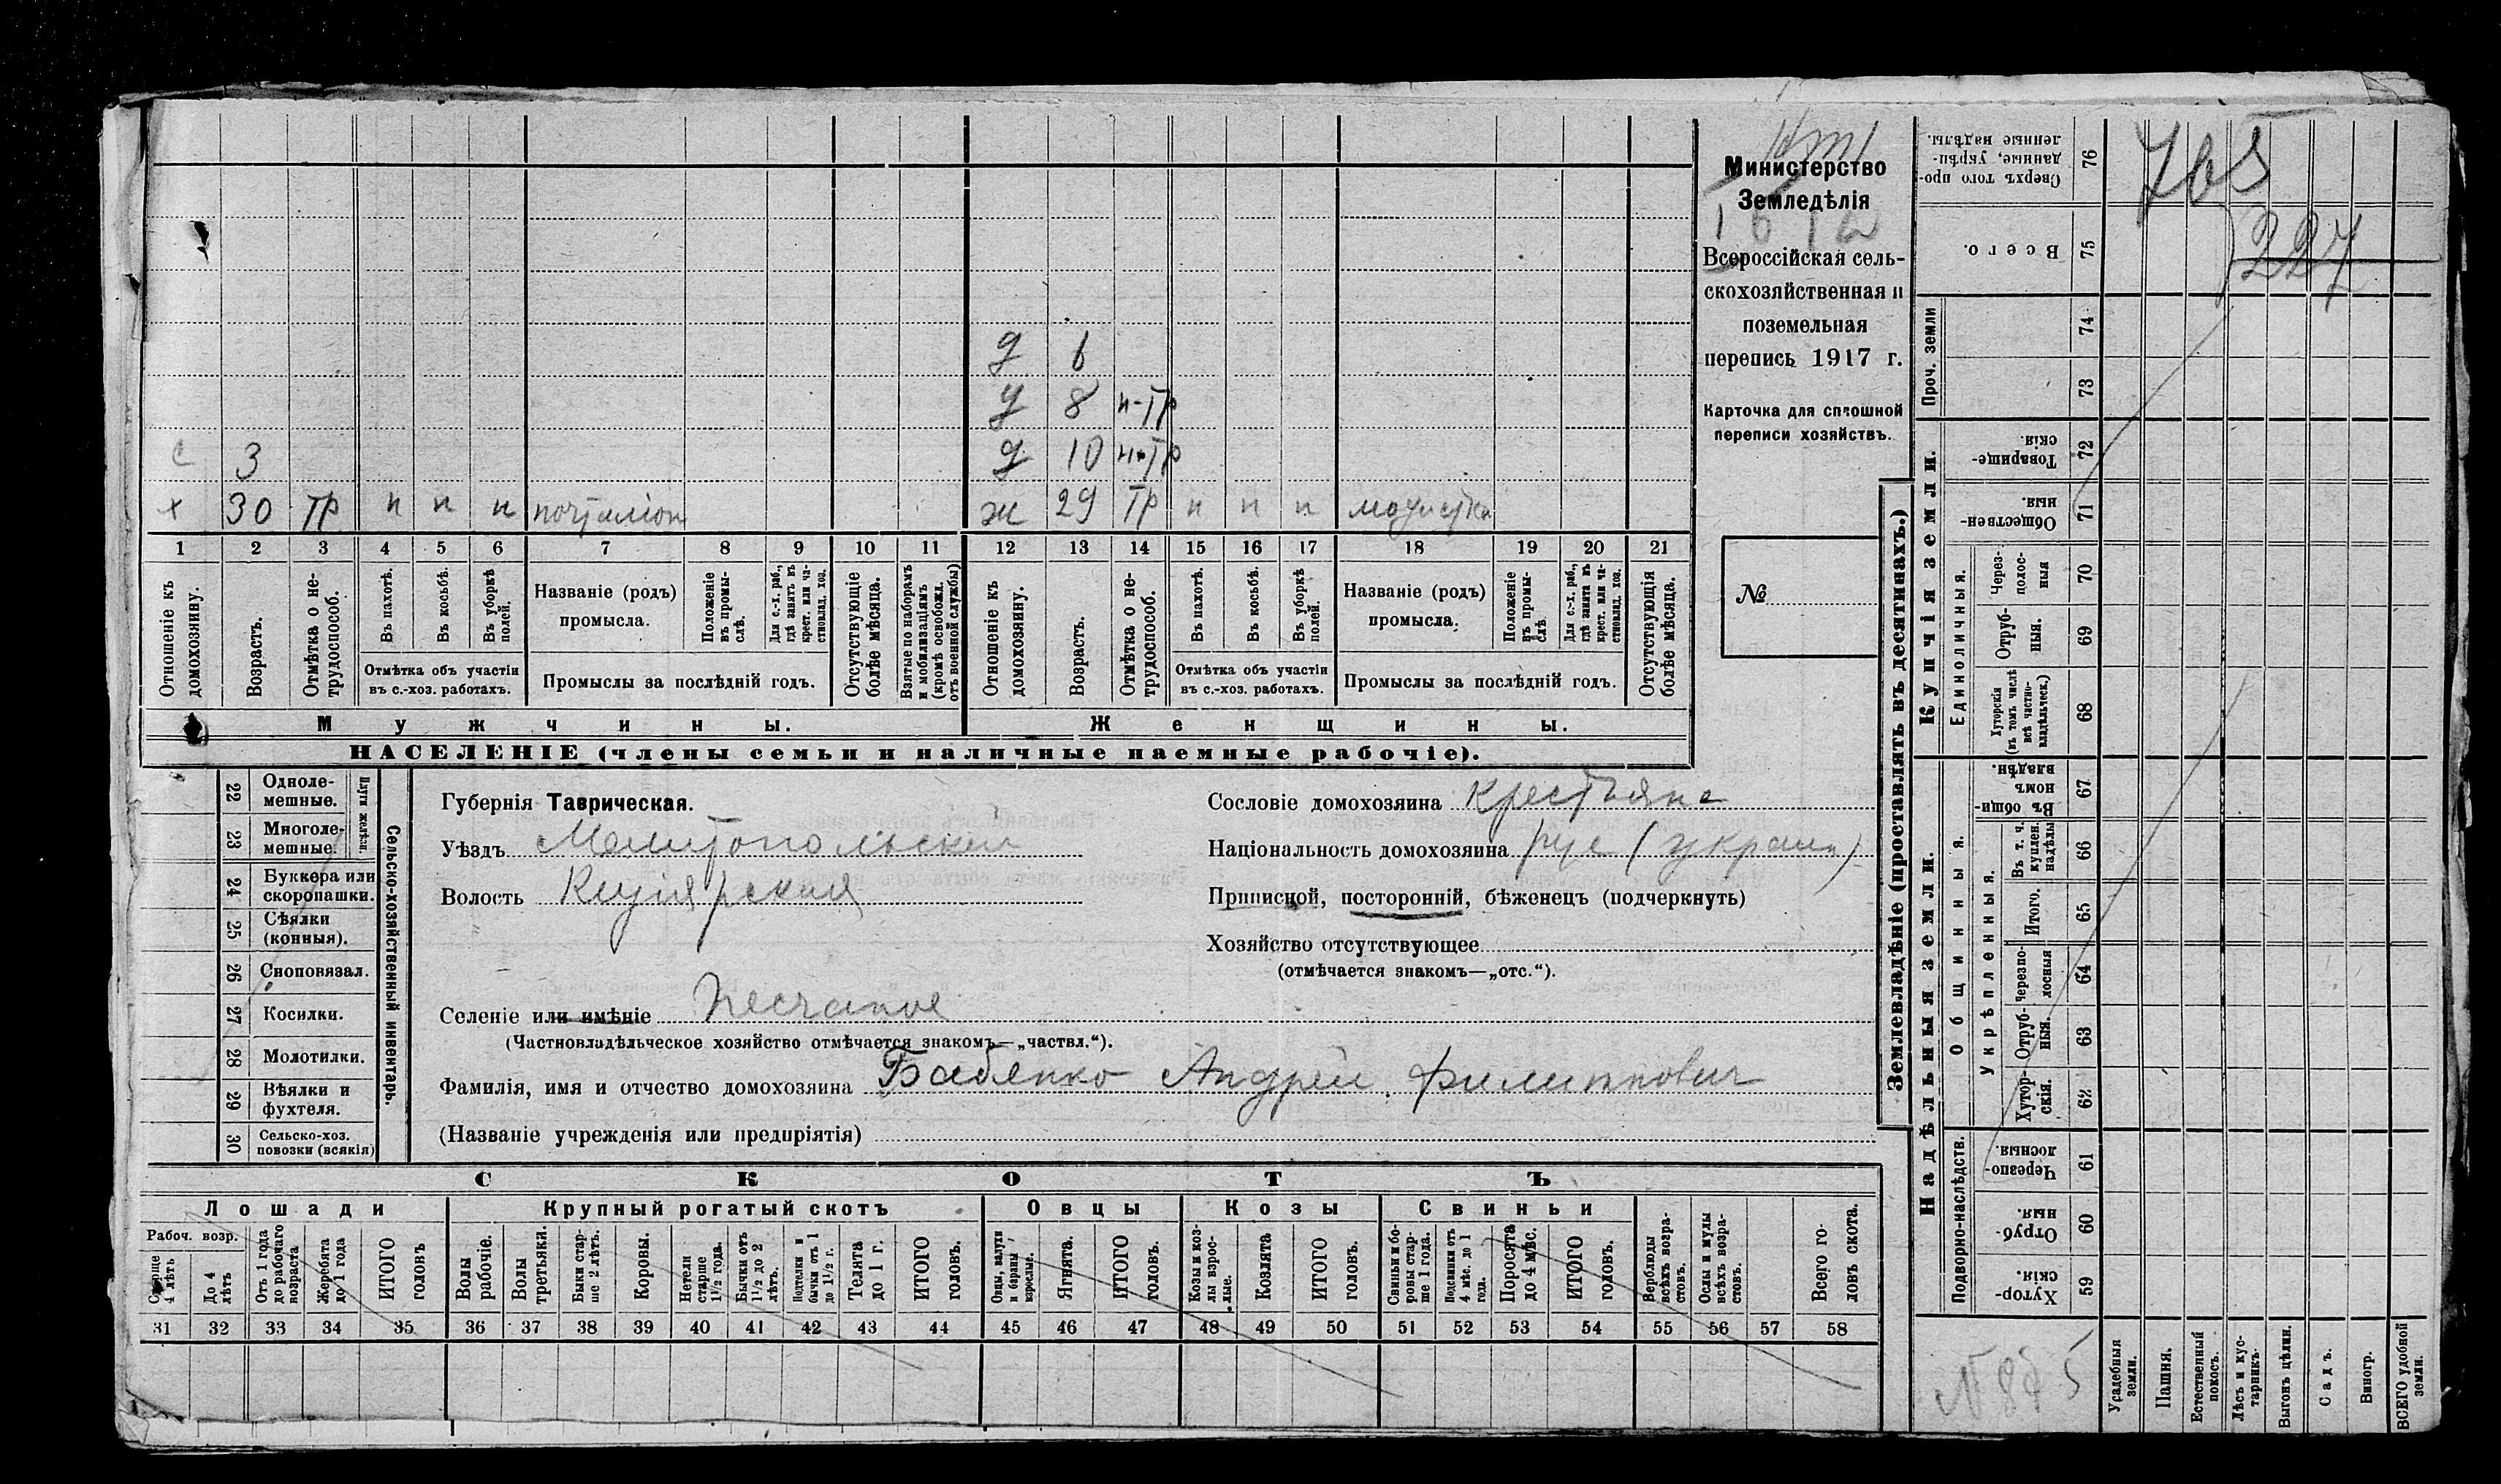 д 6
д 8 н-тр
с 3 д 10 н-тр
х 30 тр н н н почталіон ж 29 тр н н н модистка
1 2 3 4 5 6 7 8 9 10 11 12 13 14 15 16 17 18 19 20 21
Отношеніе къ домохозяину.
Возрастъ.
Отмѣтка о не-
трудоспособ.
Въ пахотѣ.
Въ косьбѣ.
Въ уборкѣ
полей.
Отмѣтка объ участіи
въ с.-хоз. работахъ.
Названіе (родъ)
промысла.
Положеніе
въ промы-
слѣ.
Для с.-х. раб.,
гдѣ занятъ въ
крест. или ча-
стновлад. хоз.
Промыслы за послѣдній годъ.
Отсутствующіе
болѣе мѣсяца.
Взятые по наборамъ
и мобилизаціямъ
(кромѣ освобожд.
отъ военной службы)
Отношеніе къ
домохозяину.
Возрастъ.
Отмѣтка о не-
трудоспособ.
Въ пахотѣ.
Въ косьбѣ.
Въ уборкѣ
полей.
Отмѣтка объ участіи
въ с.-хоз. работахъ.
Названіе (родъ)
промысла.
Положеніе
въ промы-
слѣ.
Для с.-х. раб.,
гдѣ занята въ
крест. или ча-
стновлад. хоз.
Промыслы за послѣдній годъ.
Отсутствующія
болѣе мѣсяца.
Мужчины. Женщины.
НАСЕЛЕНІЕ (члены семьи и наличные наемные рабочіе).
Министерство
Земледѣлія
Всероссійская сель-
скохозяйственная и
поземельная
перепись 1917 г.
Карточка для сплошной
переписи хозяйствъ.
№
22 Одноле-
мешные.
23 Многоле-
мешные.
Плуги желѣзн.
24 Буккера или
скоропашки.
25 Сѣялки
(конныя).
26 Сноповязал.
27 Косилки.
28 Молотилки.
29 Вѣялки и
фухтеля.
30 Сельско-хоз.
повозки (всякія)
Сельско-хозяйственный инвентарь.
Губернія Таврическая.
Уѣздъ Мелитопольскій
Волость Кизіярская
Селеніе или имѣніе Песчаное
(Частновладѣльческое хозяйство отмѣчается знакомъ—„частвл.“).
Фамилія, имя и отчество домохозяина Бабенко Андрей Филиппович
(Названіе учрежденія или предпріятія)
Сословіе домохозяина
Національность домохозяина рус (украин)
Приписной, посторонній, бѣженецъ (подчеркнуть)
Хозяйство отсутствующее
(отмѣчается знакомъ—„отс.“).
СКОТЪ
Лошади Крупный рогатый скотъ Овцы Козы Свиньи
Рабоч. возр.
Старше
4 лѣтъ
До 4
лѣтъ
Отъ 1 года
до рабочаго
возраста
Жеребята
до 1 года
ИТОГО
головъ
Волы
рабочіе.
Волы
третьяки.
Быки стар-
ше 2 лѣтъ.
Коровы.
Нетели
старше
1½ года.
Бычки отъ
1½ до 2
лѣтъ.
Подтелки и
бычки отъ 1
до 1½ г.
Телята
до 1 г.
ИТОГО
головъ.
Овцы, валухи
и бараны
взрослые.
Ягнята.
ИТОГО
головъ.
Козы и коз-
лы взрос-
лые.
Козлята
ИТОГО
головъ.
Свиньи и бо-
ровы стар-
ше 1 года.
Подсвинки отъ
4 мѣс. до 1
года.
Поросята
до 4 мѣс.
ИТОГО
головъ.
Верблюды
всѣхъ возра-
стовъ.
Ослы и мулы
всѣхъ возра-
стовъ.
Всего го-
ловъ скота.
31 32 33 34 35 36 37 38 39 40 41 42 43 44 45 46 47 48 49 50 51 52 53 54 55 56 57 58
Землевладѣніе (проставлять въ десятинахъ.)
Надѣльныя земли. Купчія земли. Проч. земли
Подворно-наслѣдств.
Общинныя.
Укрѣпленныя.
Единоличныя.
Сверхъ того про-
данные, укрѣп-
ленные надѣлы. 76
Всего. 75
74
73
Товарище-
скія. 72
Обществен-
ныя. 71
Через-
полос-
ныя 70
Отруб-
ныя. 69
Хуторскія
(въ томъ числѣ
всѣ частно-
владѣльческ.) 68
Въ общин-
номъ
владѣн. 67
Въ т. ч.
куплен.
надѣлы 66
Итого. 65
Черезпо-
лосныя 64
Отруб-
ныя. 63
Хутор-
скія. 62
Черезпо-
лосныя. 61
Отруб-
ныя. 60
Хутор-
скія. 59
Усадебныя
земли.
Пашня.
Естественный
покосъ.
Лѣсъ и кус-
тарникъ.
Выгонъ цѣлин.
Садъ.
Виногр.
ВСЕГО удобной
земли.
765
227